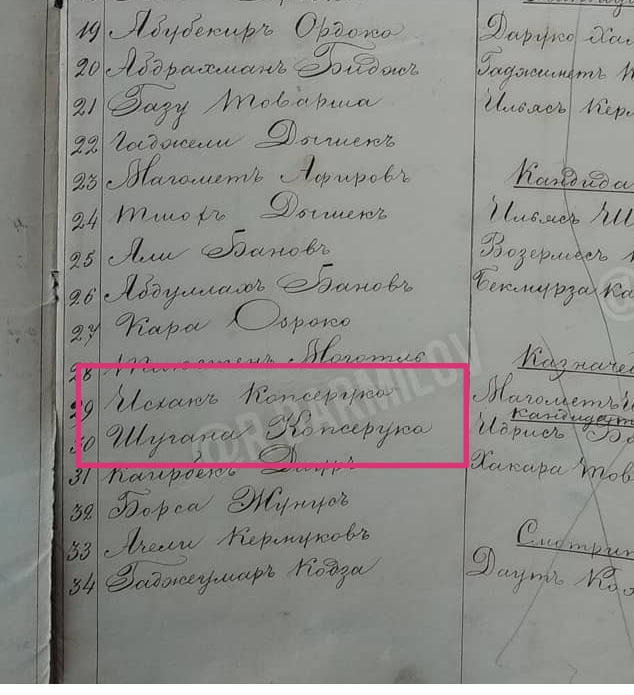 19 Абубекиръ Ордоко
20 Абдрахманъ Биджъ
21 Газу Товарша
22 Гаджели Дышекъ
23 Магометъ Афировъ
24 Тшохъ Дышекъ
25 Али Бановъ
26 Абдуллахъ Бановъ
27 Кара Озроко
28
29 Исхакъ Копсеруко
30 Шугана Копсеруко
31 Кагирбекъ Дауръ
32 Борса Жунусъ
33 Ачели Кермуковъ
34 Гаджеумаръ Кодза
Даруко Хал
Гаджиметъ
Ильясъ Керм
Кандида
Ильясъ Ш
Возермесъ
Бекмурза Ка
Казначе
Магометъ
кандидат
Идрисъ Бо
Хакара Тов
Смотрит
Даутъ Ко
@R.KARMILOV